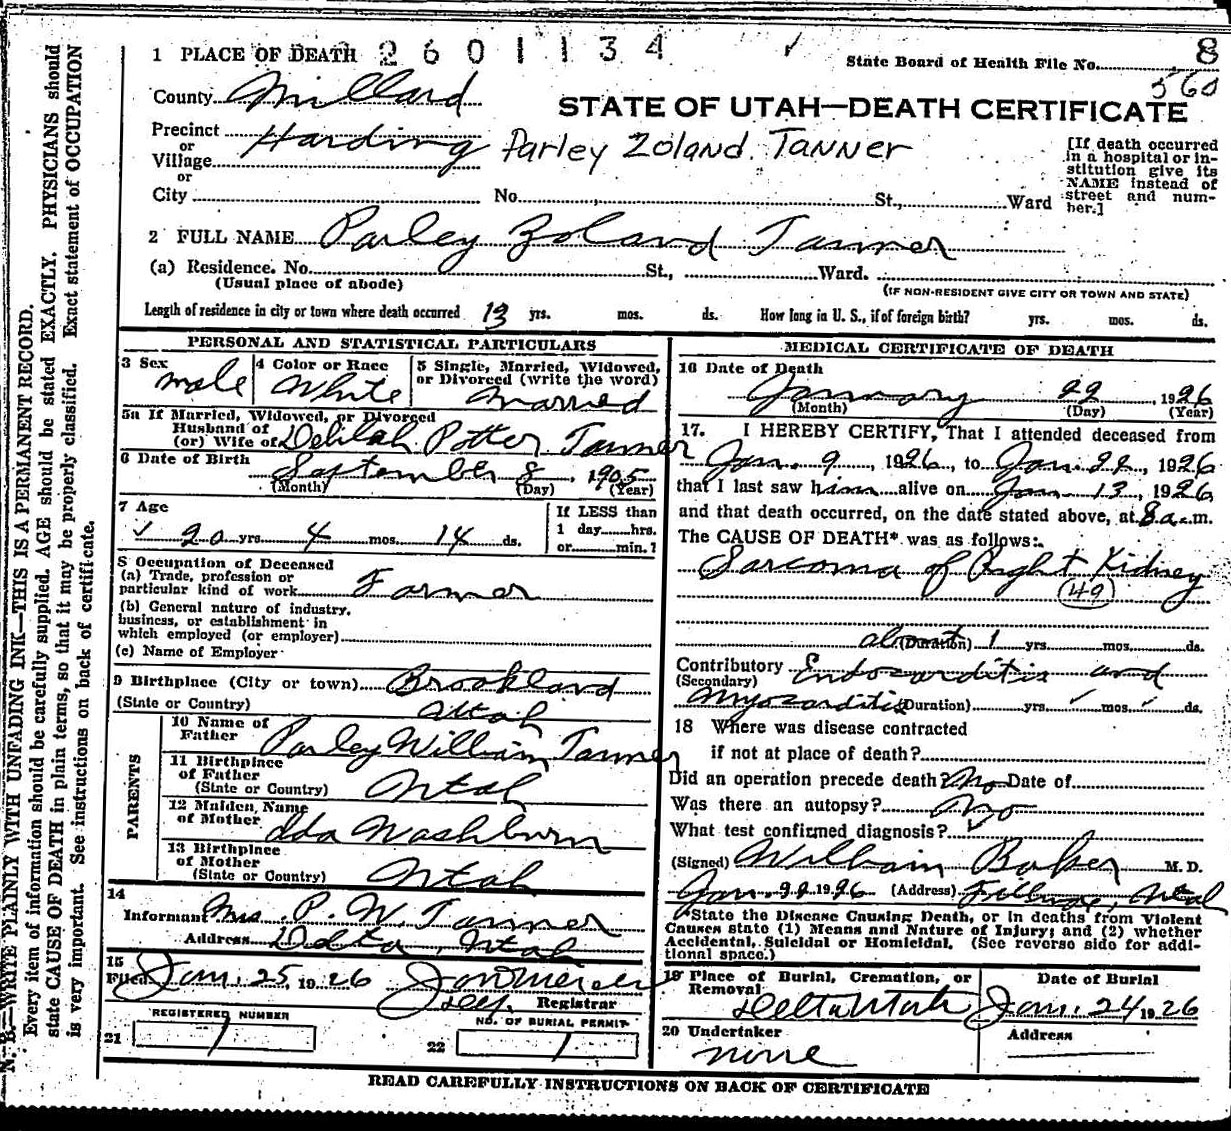 N. B.—WRITE PLAINLY WITH UNFADING INK—THIS IS A PERMANENT RECORD.
Every item of information should be carefully supplied. AGE should be stated EXACTLY. PHYSICIANS should
state CAUSE OF DEATH in plain terms, so that it may be properly classified. Exact statement of OCCUPATION
is very important. See instructions on back of certificate.
1 PLACE OF DEATH 2601134
State Board of Health File No. 8
560
County Millard
STATE OF UTAH—DEATH CERTIFICATE
Precinct Harding
or
Village
or
City
Parley Zoland Tanner
[If death occurred
in a hospital or in-
stitution give its
NAME instead of
street and num-
ber.]
No. St., Ward
2 FULL NAME Parley Zoland Tanner
(a) Residence. No. St., Ward.
(Usual place of abode) (IF NON-RESIDENT GIVE CITY OR TOWN AND STATE)
Length of residence in city or town where death occurred 13 yrs. mos. ds. How long in U. S., if of foreign birth? yrs. mos. ds.
PERSONAL AND STATISTICAL PARTICULARS
3 Sex male
4 Color or Race White
5 Single, Married, Widowed,
or Divorced (write the word)
Married
5a If Married, Widowed, or Divorced
Husband of
(or) Wife of Delilah Potter Tanner
6 Date of Birth September 8, 1905
(Month) (Day) (Year)
7 Age
20 yrs. 4 mos. 14 ds.
If LESS than
1 day hrs.
or min.?
8 Occupation of Deceased
(a) Trade, profession or
particular kind of work Farmer
(b) General nature of industry,
business, or establishment in
which employed (or employer)
(c) Name of Employer
9 Birthplace (City or town) Brookland
(State or Country) Utah
PARENTS
10 Name of
Father Parley William Tanner
11 Birthplace
of Father
(State or Country) Utah
12 Maiden Name
of Mother Ida Washburn
13 Birthplace
of Mother
(State or Country) Utah
14
Informant Mrs. P. W. Tanner
Address Delta, Utah
15
Filed Jan. 25 1926
Registrar
REGISTERED NUMBER
21 1
NO. OF BURIAL PERMIT
22 1
MEDICAL CERTIFICATE OF DEATH
16 Date of Death
January 22, 1926
(Month) (Day) (Year)
17. I HEREBY CERTIFY, That I attended deceased from
Jan. 9, 1926, to Jan. 22, 1926
that I last saw him alive on Jan 13, 1926
and that death occurred, on the date stated above, at 8 a.m.
The CAUSE OF DEATH* was as follows:
Sarcoma of Right Kidney
(49)
about (Duration) 1 yrs. mos. ds.
Contributory Endocarditis and
(Secondary)
Myocarditis (Duration) yrs. mos. ds.
18 Where was disease contracted
if not at place of death?
Did an operation precede death? No Date of
Was there an autopsy? No
What test confirmed diagnosis?
(Signed) William Baker M.D.
Jan. 22 1926 (Address) Fillmore, Utah
*State the Disease Causing Death, or in deaths from Violent
Causes state (1) Means and Nature of Injury; and (2) whether
Accidental, Suicidal or Homicidal. (See reverse side for addi-
tional space.)
19 Place of Burial, Cremation, or
Removal
Delta Utah
Date of Burial
Jan. 24 1926
20 Undertaker
none
Address
READ CAREFULLY INSTRUCTIONS ON BACK OF CERTIFICATE